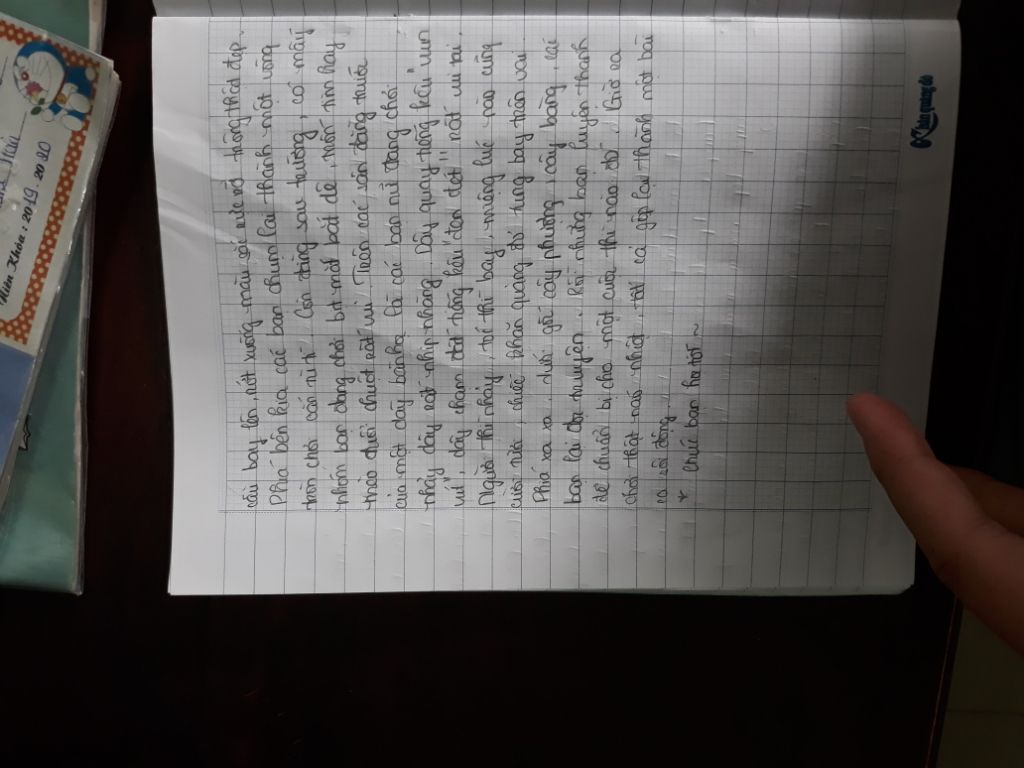 cầu bay lên, rớt xuống màu sắc rực rỡ trông thật đẹp.
Phía bên kia các bạn chụm lại thành một vòng
tròn chơi oản tù tì. Còn đằng sau trường, có mấy
nhóm bạn đang chơi bịt mắt bắt dê, trốn tìm hay
mèo đuổi chuột rất vui. Trên các sân đằng trước
của một dãy bành là các bạn nữ đang chơi
nhảy dây rất nhịp nhàng. Dây quay trông kêu "vun
vút", dây chạm đất trông kêu "đen đét" nất vui tai.
Người thì nhảy, tó thì bay, miệng lúc nào cũng
cười tươi, chiếc khăn quàng đỏ tung bay trên vai.
Phía xa xa, dưới gốc cây phượng, cây bàng, các
bạn lại đọc truyện, hay những bạn luyện thanh
để chuẩn bị cho một cuộc thi nào đó. Giờ ra
chơi thật náo nhiệt, tất cả gộp lại thành một bài
ca sôi động.
* Chúc bạn học tốt ~
Khóa : 2019 2020